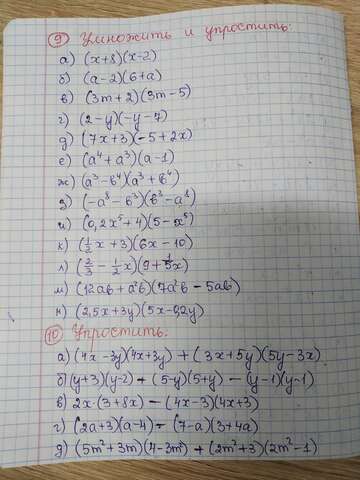 9 Умножить и упростить:
а) (x+8)(x-2)
б) (a-2)(6+a)
в) (3m+2)(3m-5)
г) (2-y)(-y-7)
д) (7x+3)(-5+2x)
е) (a⁴+a³)(a-1)
ж) (a³-b⁴)(a³+b⁴)
з) (-a⁸-b³)(b³-a⁸)
и) (0,2x⁵+4)(5-x⁵)
к) (1/2x+3)(6x-10)
л) (2/3-1/2x)(9+1/5x)
м) (12ab+a²b)(7a²b-5ab)
н) (2,5x+3y)(5x-0,2y)
10 Упростить:
а) (4x-3y)(4x+3y)+(3x+5y)(5y-3x)
б) (y+3)(y-2)+(5-y)(5+y)-(y-1)(y-1)
в) 2x·(3+8x)-(4x-3)(4x+3)
г) (2a+3)(a-4)-(7-a)(3+4a)
д) (5m²+3m)(4-3m²)+(2m²+3)(2m²-1)